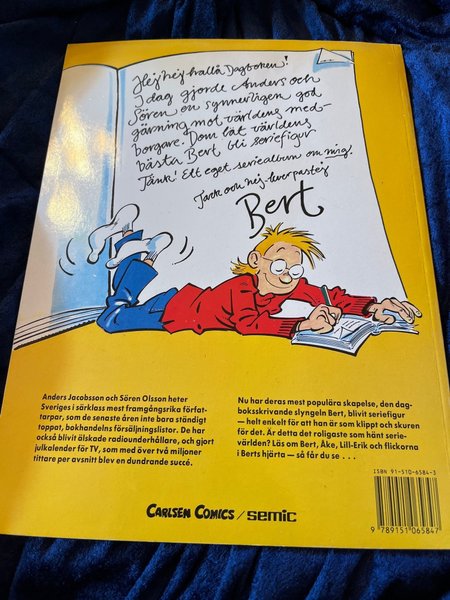 Hej hej hallå Dagboken!
I dag gjorde Anders och
Sören en synnerligen god
gärning mot världens med-
borgare. Dom lät världens
bästa Bert bli seriefigur.
Tänk! Ett eget seriealbum om mig!
Tack och hej leverpastej
Bert
Anders Jacobsson och Sören Olsson heter
Sveriges i särklass mest framgångsrika förfat-
tarpar, som de senaste åren inte bara ständigt
toppat, bokhandelns försäljningslistor. De har
också blivit älskade radiounderhållare, och gjort
julkalender för TV, som med över två miljoner
tittare per avsnitt blev en dundrande succé.
Nu har deras mest populära skapelse, den dag-
boksskrivande slyngeln Bert, blivit seriefigur
— helt enkelt för att han är som klippt och skuren
för det. Är detta det roligaste som hänt serie-
världen? Läs om Bert, Åke, Lill-Erik och flickorna
i Berts hjärta — så får du se . . .
ISBN 91-510-6584-3
CARLSEN COMICS / SEMIC
9 789151 065847